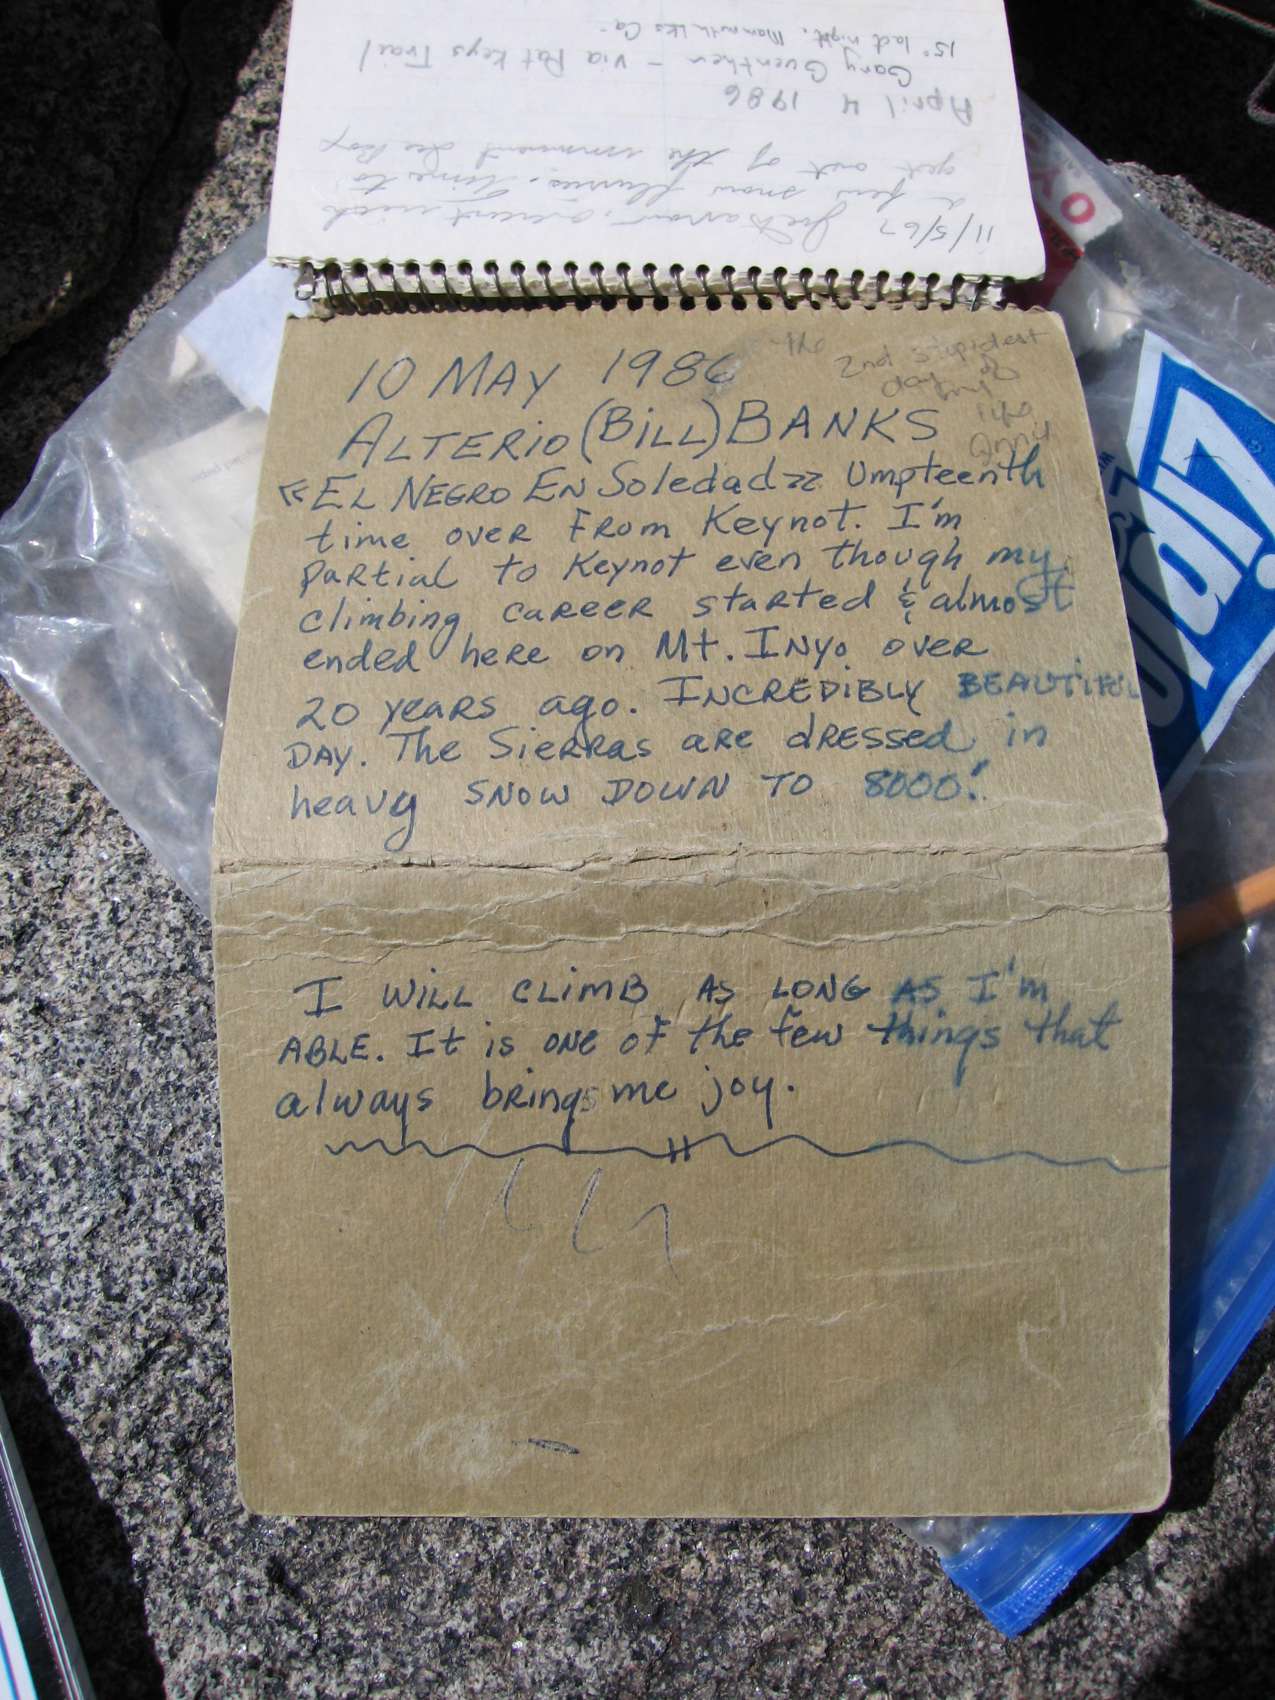 10 MAY 1986
ALTERIO (BILL) BANKS
«EL NEGRO EN Soledad» Umpteenth
time over FROM Keynot. I'm
partial to Keynot even though my
climbing career started & almost
ended here on Mt. INyo over
20 years ago. INCREDIBLY BEAUTIFUL
DAY. The Sierras are dressed in
heavy SNOW DOWN TO 8000'.
I WILL CLIMB AS LONG AS I'm
ABLE. It is one of the few things that
always brings me joy.
the
2nd stupidest
day of
my
life
11/5/67
a few snow flurries. Time to
get out of the
April 4 1986
Gary Guenther - via Pat Keys Trail
15° last night. Mammoth Lks Ca.
Ziploc